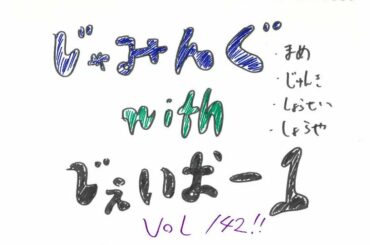 じゃみんぐ
with
じぇいばー1
VOL 142!!
・まめ
・じゅんき
・しょうせい
・しょうや